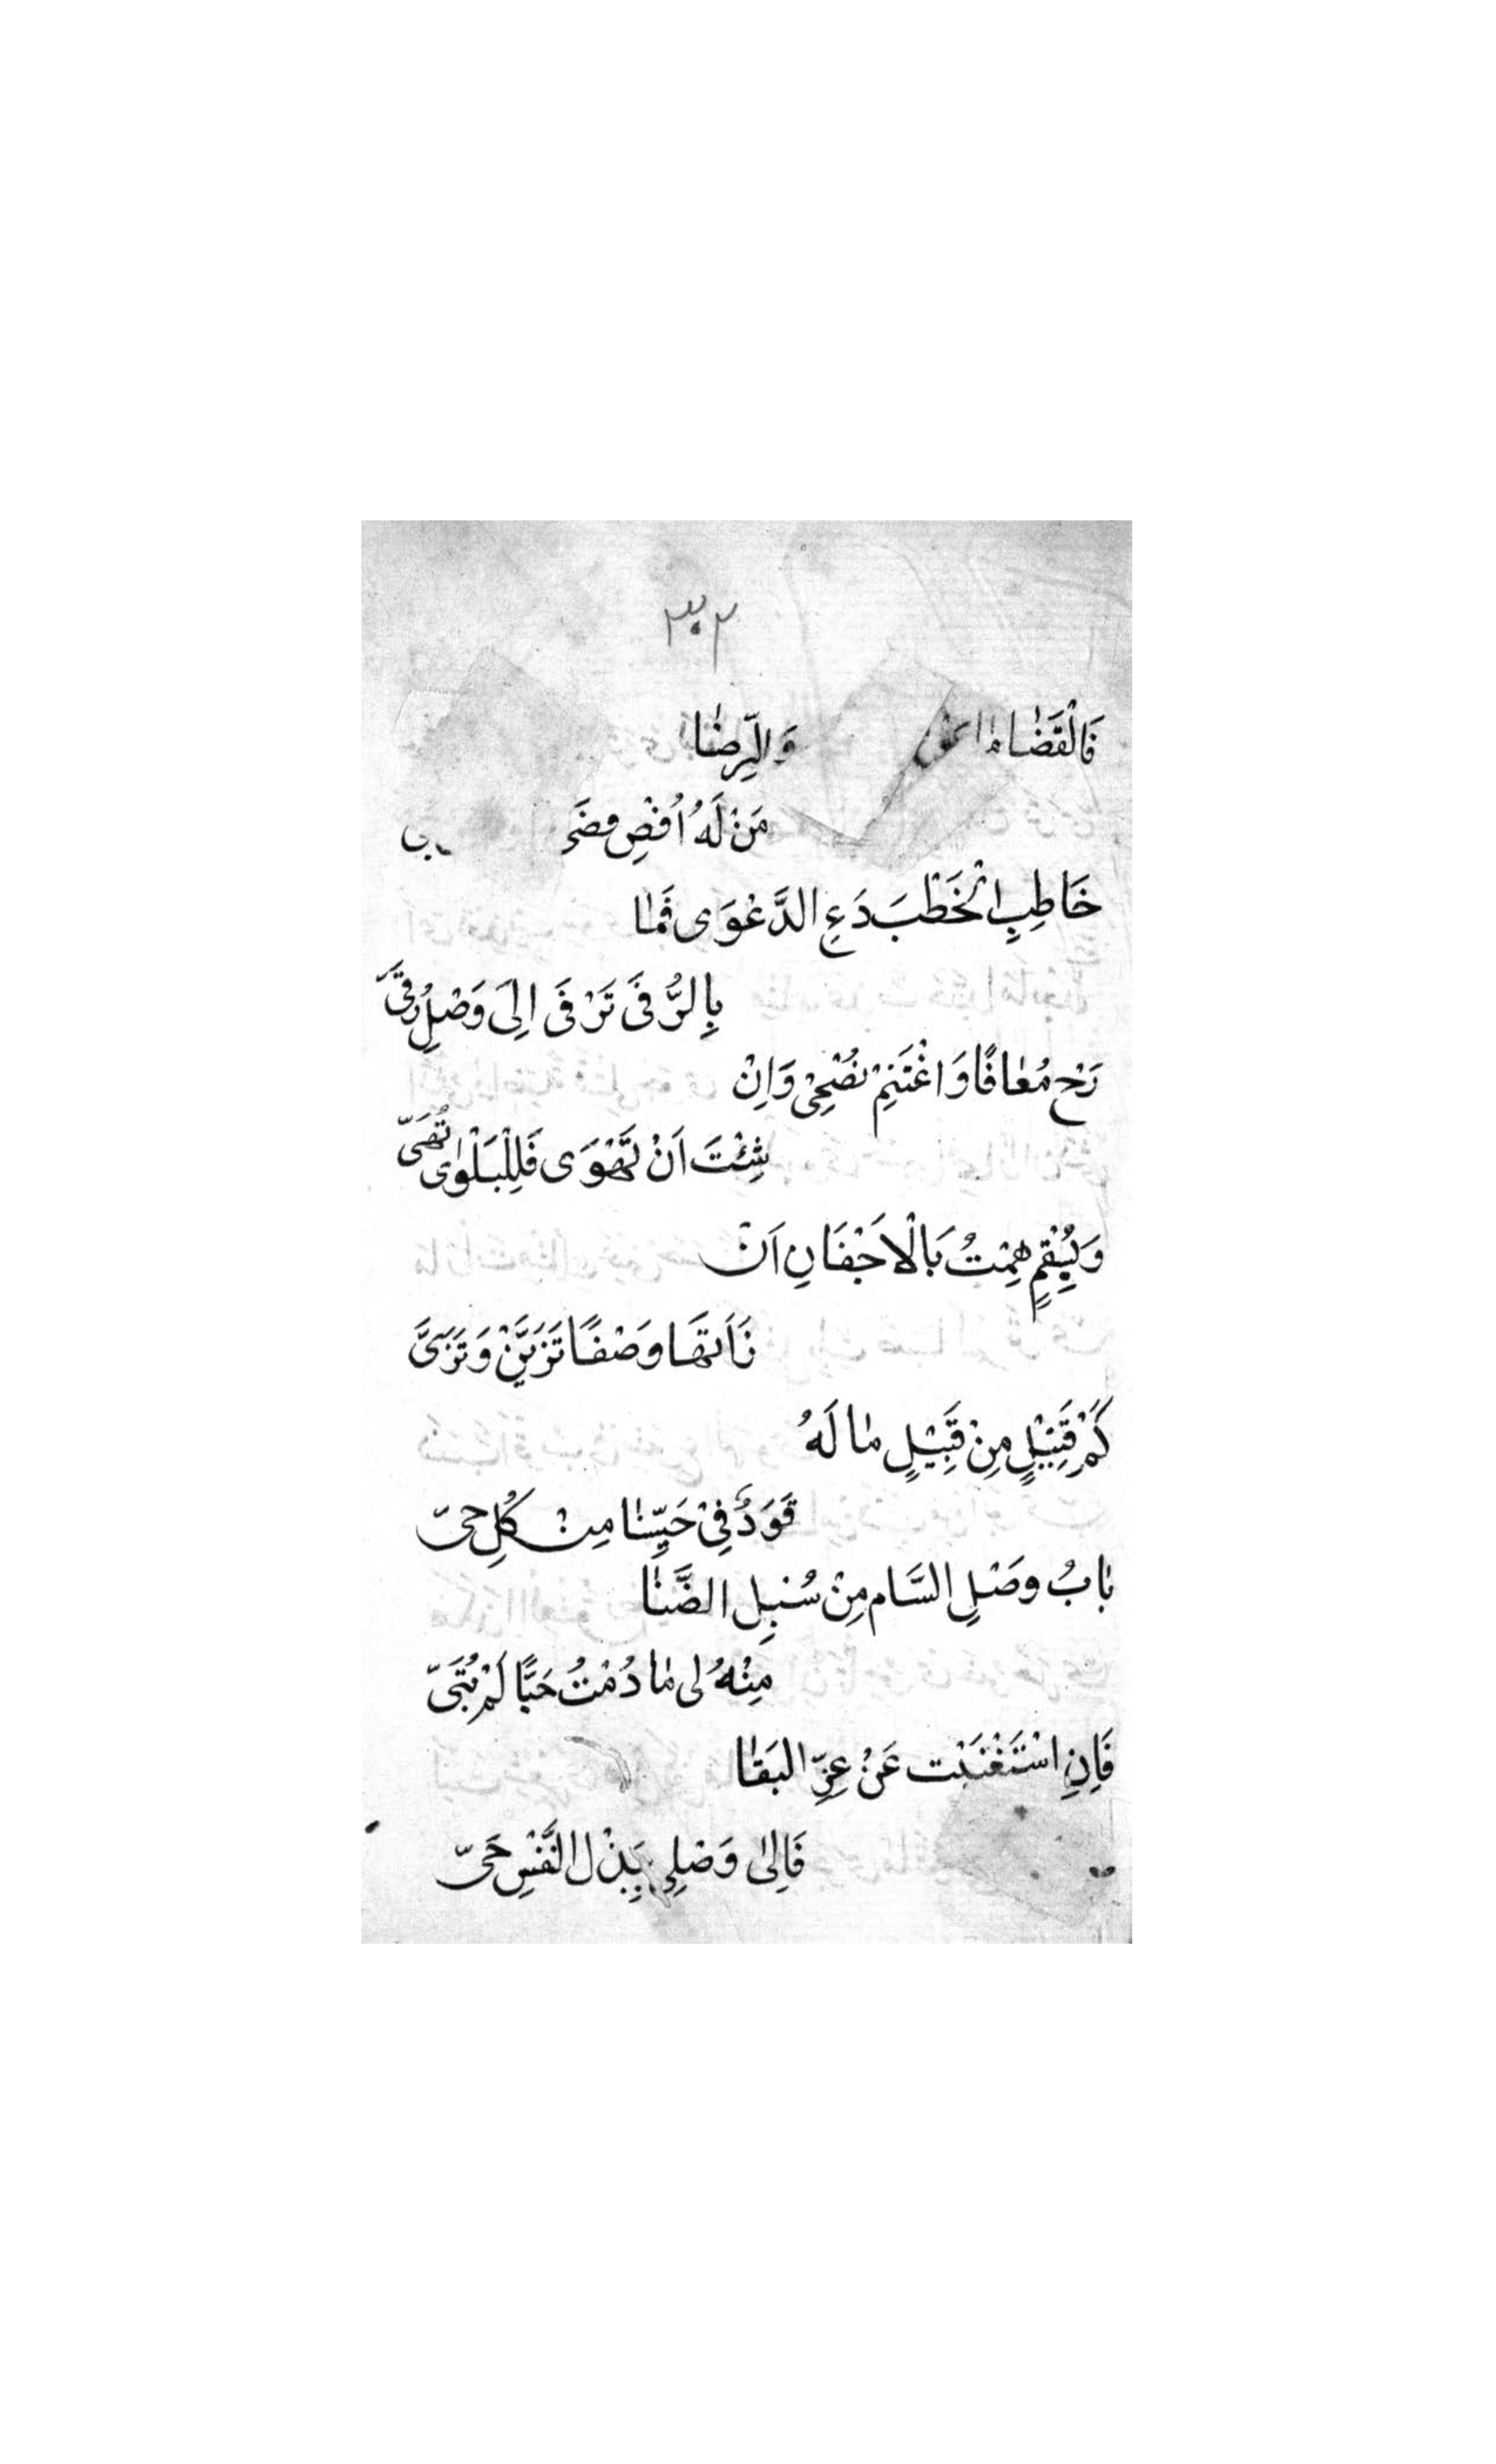 ٣٠٢
فَالْقَضَا مَا وَالرِّضَا
مَنْ لَهُ اُقْصِ قضَى
خَاطِبِ الْخَطْبَ دَعِ الدَّعْوَى فَمَا
بِالرُّقَى تَرْقَى اِلَى وَصْلِ رُقَىّ
رَحْ مُعَافًا وَاغْتَنِمْ نُصْحِىْ وَاِنْ
شِئْتَ اَنْ تَهْوَى فَلِلْبَلْوَى تُهَىّ
وَبِسُقْمٍ هِمْتُ بَالْاَجْفَانِ اَنْ
زَاَنَهَا وَصْفًا تَزَيَّنْ وَتَزَىَّ
كَمْ قَتِيْلٍ مِنْ قَبِيْلٍ مَا لَهُ
قَوَدٌ فِىْ حَيِّنَا مِنْ كُلِ حىّ
بَابُ وصَْلِ السَّام مِنْ سُبُلِ الضَّنَا
مِنْهُ لى مَا دُمْتُ حَيًّا لَمْ تُبَىّ
فَاِنِ اسْتَغْنَيْت عَنْ عِزِّ البَقَا
فَاِلَى وَصْلِى بِبَذْل النَّفْسِ حَىّ